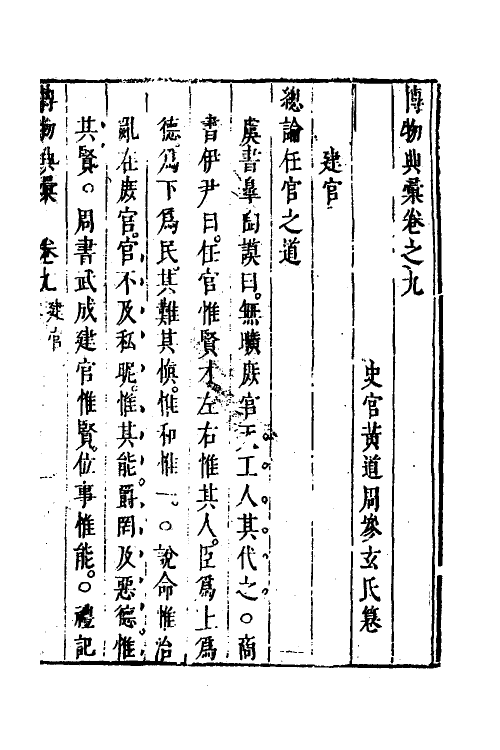 博物典彙卷之九
史官黃道周參玄氏纂
建官
總論任官之道
虞書皋陶謨曰。無曠庶官。天工人其代之。○商
書伊尹曰。任官惟賢才。左右惟其人。臣爲上爲
德。爲下爲民。其難其愼。惟和惟一。○說命惟治
亂在庶官。官不及私昵。惟其能。爵罔及惡德。惟
其賢。○周書武成建官惟賢。位事惟能。○禮記
博物典彙 卷九 建官